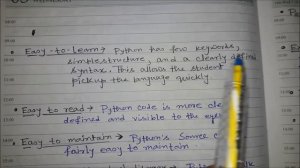 Easy-to-Learn → Python has few keywords,
simple structure, and a clearly defined
syntax. This allows the student
pick up the language quickly.
Easy to read → Python code is more cle
defined and visible to the eye
Easy to maintain → Python's Source c
fairly easy to maintain